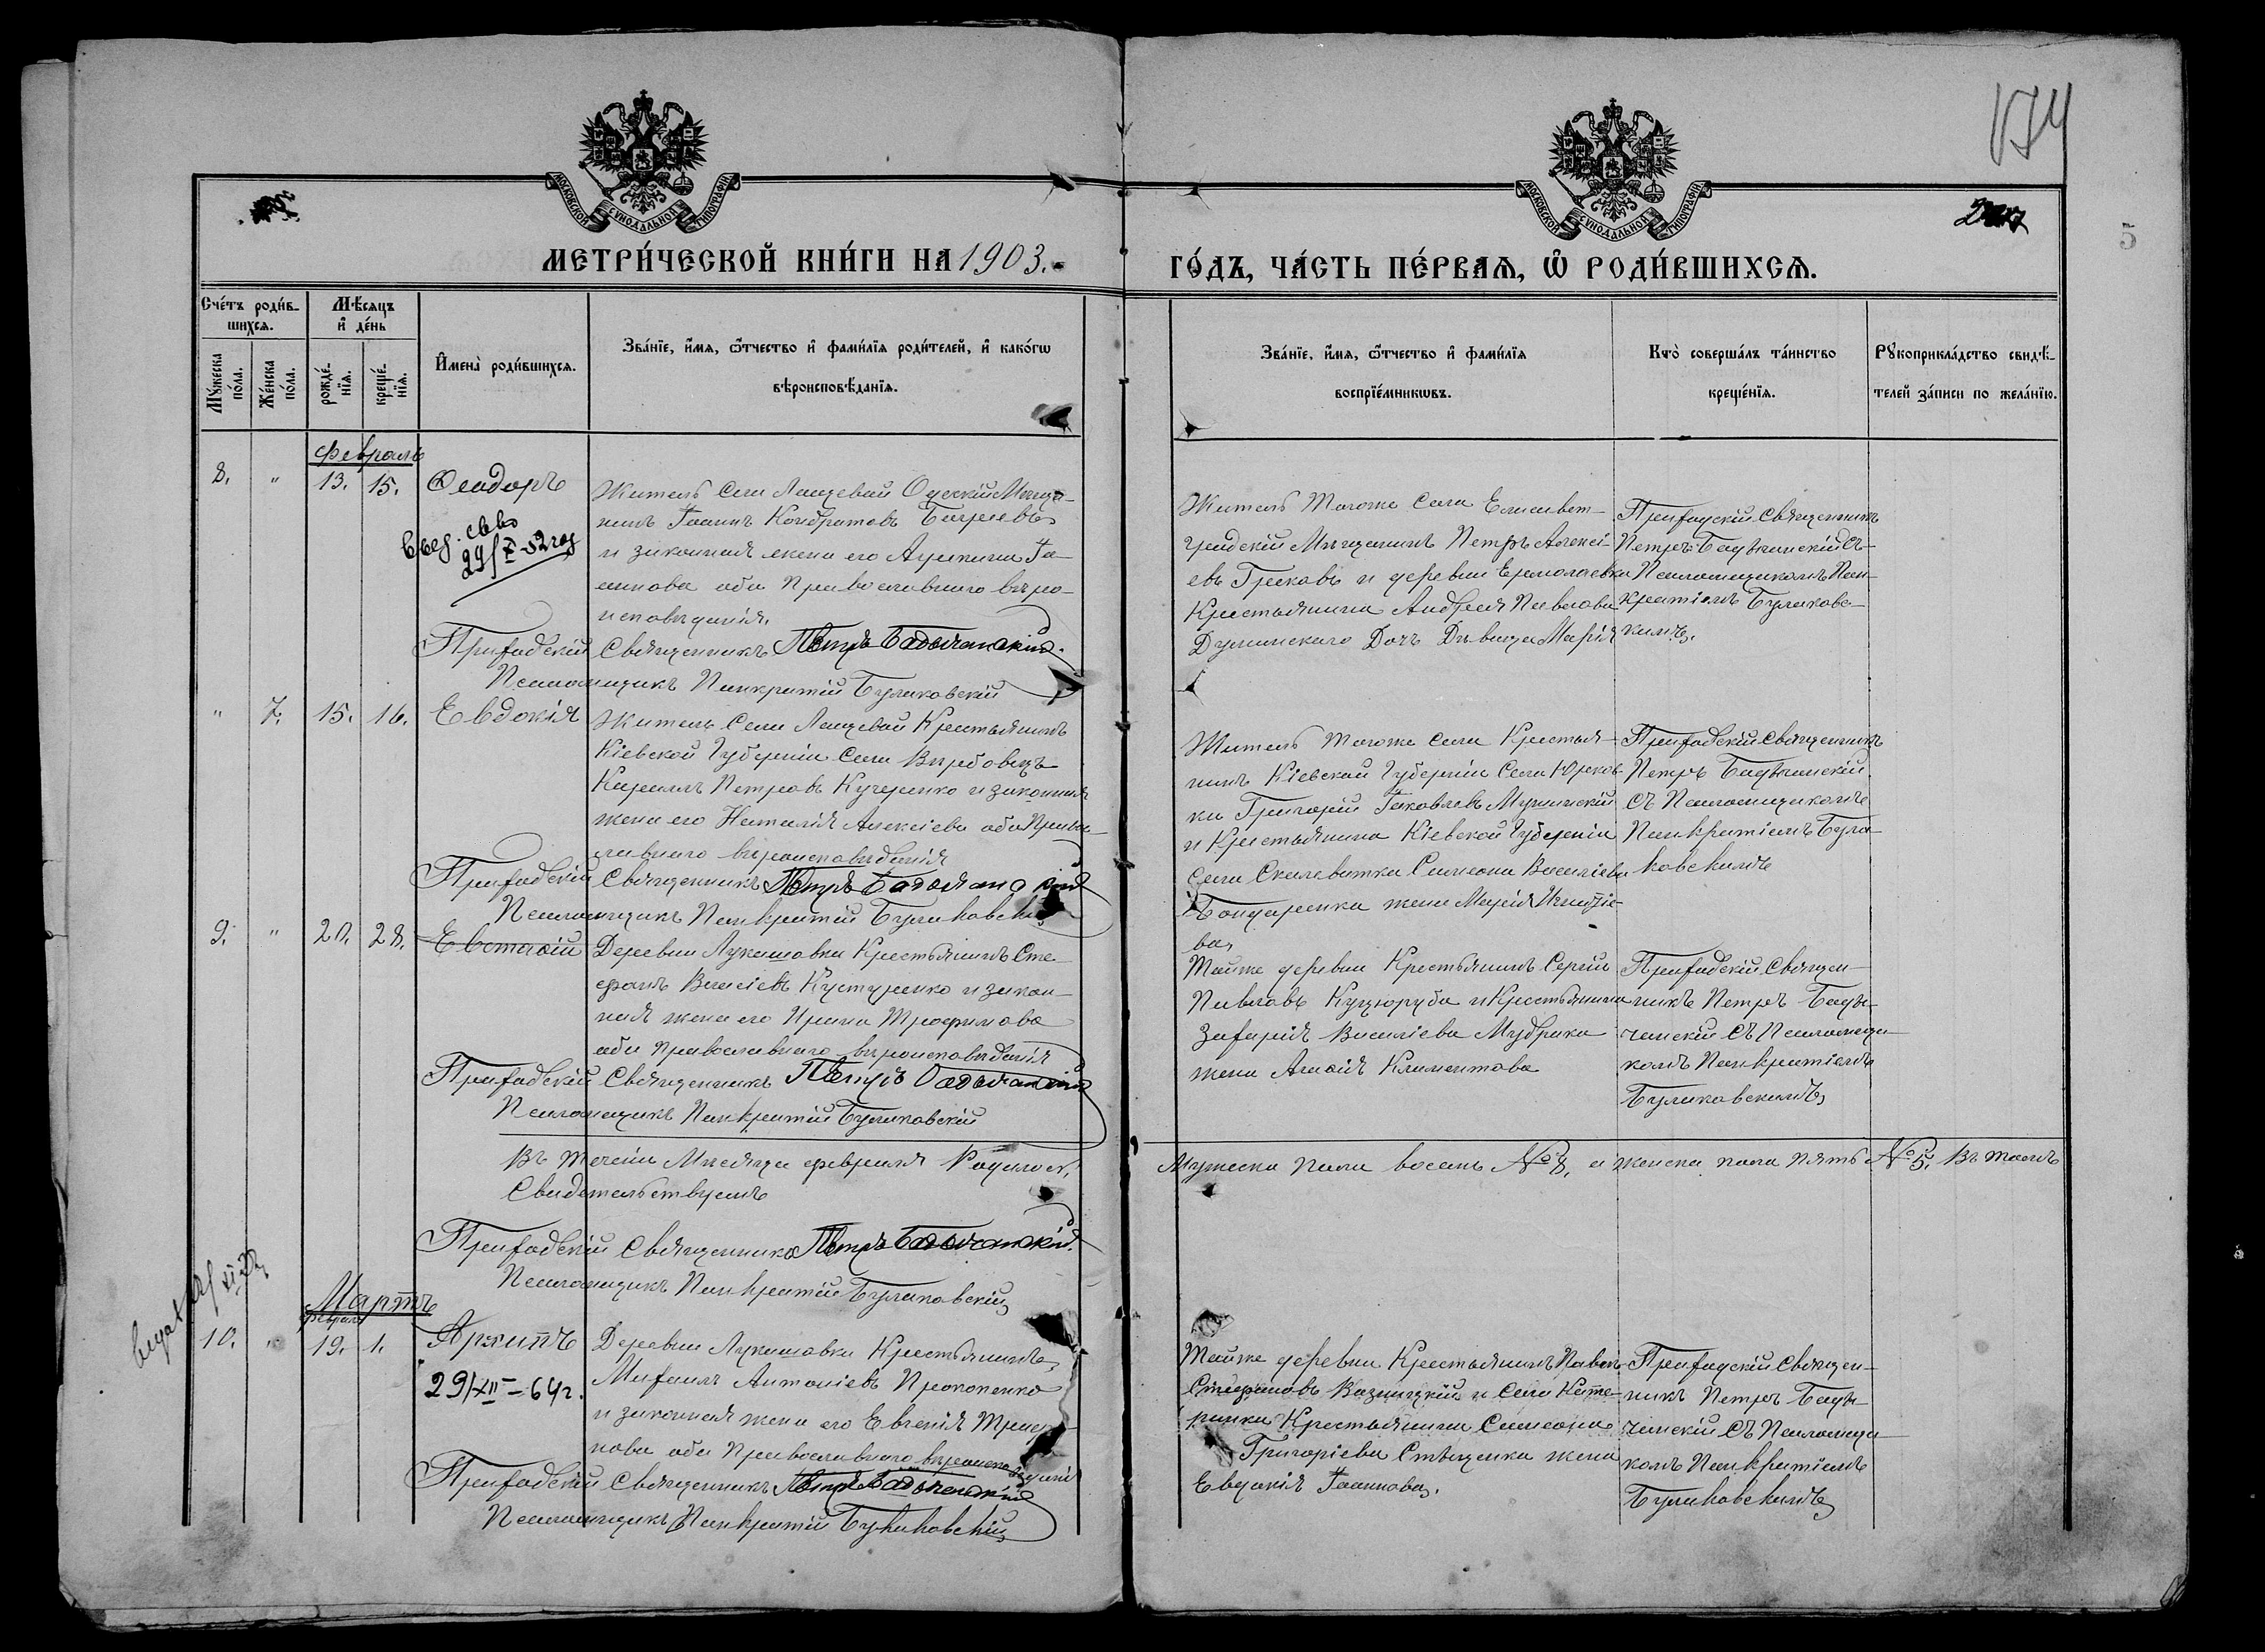 174
5
МОСКОВСКОЙ СѴНОДАЛЬНОЙ ТИПОГРАФІИ
МОСКОВСКОЙ СѴНОДАЛЬНОЙ ТИПОГРАФІИ
МЕТРИ́ЧЕСКОЙ КНИ́ГИ НА 1903.
ГО́ДЪ, ЧА́СТЬ ПЕ́РВАѦ, Ѡ РОДИ́ВШИХСѦ.
Сче́тъ роди́в-
шихсѧ.
Мѣ́сяцъ
и҆ де́нь
Мꙋ́жеска по́ла.
Же́нска по́ла.
рожде́-
нїѧ.
креще́-
нїѧ.
И҆мена̀ роди́вшихсѧ.
Зва́нїе, и҆́мѧ, ѻ҆́тчество и҆ фами́лїѧ роди́телей, и҆ како́гѡ
вѣроисповѣ́данїѧ.
Зва́нїе, и҆́мѧ, ѻ҆́тчество и҆ фами́лїѧ
воспрїе́мникѡвъ.
Кто̀ соверша́лъ та́инство
креще́нїѧ.
Рꙋкоприкла́дство свидѣ́-
телей за́писи по жела́нїю.
Февраль
8. " 13. 15. Ѳеодоръ
29/X-52 год
Житель Села Лащевой Одесскій Мѣща-
нинъ Іоаннъ Кондратовъ
и законная жена его Агрипина Іо-
аннова оба Православнаго вѣро-
исповѣданія.
Приходскій Священникъ Петръ
Псаломщикъ Панкратій Булиховскій
Житель Тогоже Села Елисавет-
градскій Мѣщанинъ Петръ Алексі-
евъ Грековъ и деревни Ермолаевки
Крестьянина Андрея Павлова
Дочь Дѣвица Марія
Приходскій Священникъ
Петръ съ
Псаломщикомъ Пан-
кратіемъ Булиховс-
кимъ.
" 7. 15. 16. Евдокія
Житель Села Лащевой Крестьянинъ
Кіевской Губерніи Села Вербовецъ
Кириллъ Петровъ Кучеренко и законная
жена его Наталія Алексіева оба Право-
славнаго вѣроисповѣданія
Приходскій Священникъ Петръ
Псаломщикъ Панкратій Булиховскій
Житель Тогоже Села Крестья-
нинъ Кіевской Губерніи Села Юрков-
ки Григорій Іаковлевъ
и Крестьянина Кіевской Губерніи
Села Скалеватки Симеона Василіева
Бондаренка жена Марія Игнатіе-
ва,
Приходскій Священникъ
Петръ
съ Псаломщикомъ
Панкратіемъ Були-
ховскимъ
9. " 20. 28. Евстаѳій
Деревни Лукашовки Крестьянинъ Сте-
фанъ Кустуренко и закон-
ная жена его Ирина Трофимова
оба православнаго вѣроисповѣданія
Приходскій Священникъ Петръ
Псаломщикъ Панкратій Булиховскій
Тойже деревни Крестьянинъ Сергій
Павловъ Куцюруба и Крестьянина
Захарія Василіева Мудрика
жена Агаѳія Климентова
Приходскій Священ-
никъ Петръ
съ Псаломщи-
комъ Панкратіемъ
Булиховскимъ,
Въ теченіи Мѣсяца февраля Родилось,
Мужеска пола восемь № 8, а женска пола пять № 5. Въ томъ
Свидетельствуемъ
Приходскій Священникъ Петръ
Псаломщикъ Панкратій Булиховскій
Мартъ
Февраль
10. " 19. 1. Архипъ
29/XII-64 г.
Деревни Лукашовки Крестьянинъ
Михаилъ Антоніевъ Прокопенко
и законная жена его Евгенія
оба Православнаго вѣроисповѣданія
Приходскій Священникъ Петръ
Псаломщикъ Панкратій Булиховскій
Тойже деревни Крестьянинъ Павелъ
Стефановъ и Села Кате-
ринки Крестьянина Симеона
Григоріева Стѣценка жена
Евдокія Іоаннова.
Приходскій Священ-
никъ Петръ
съ Псаломщи-
комъ Панкратіемъ
Булиховскимъ